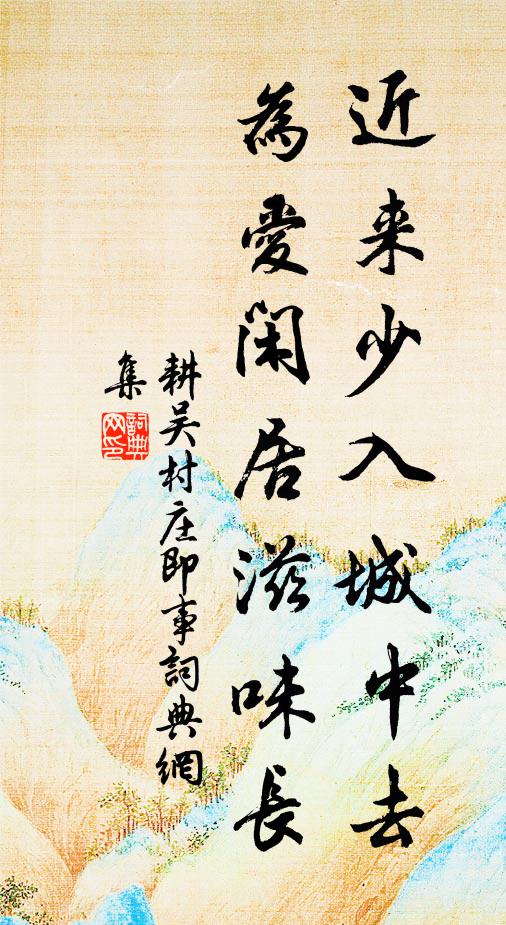 近来少入城中去
為愛閑居滋味長
耕吴村庄即事詞典網
集
詞典网印